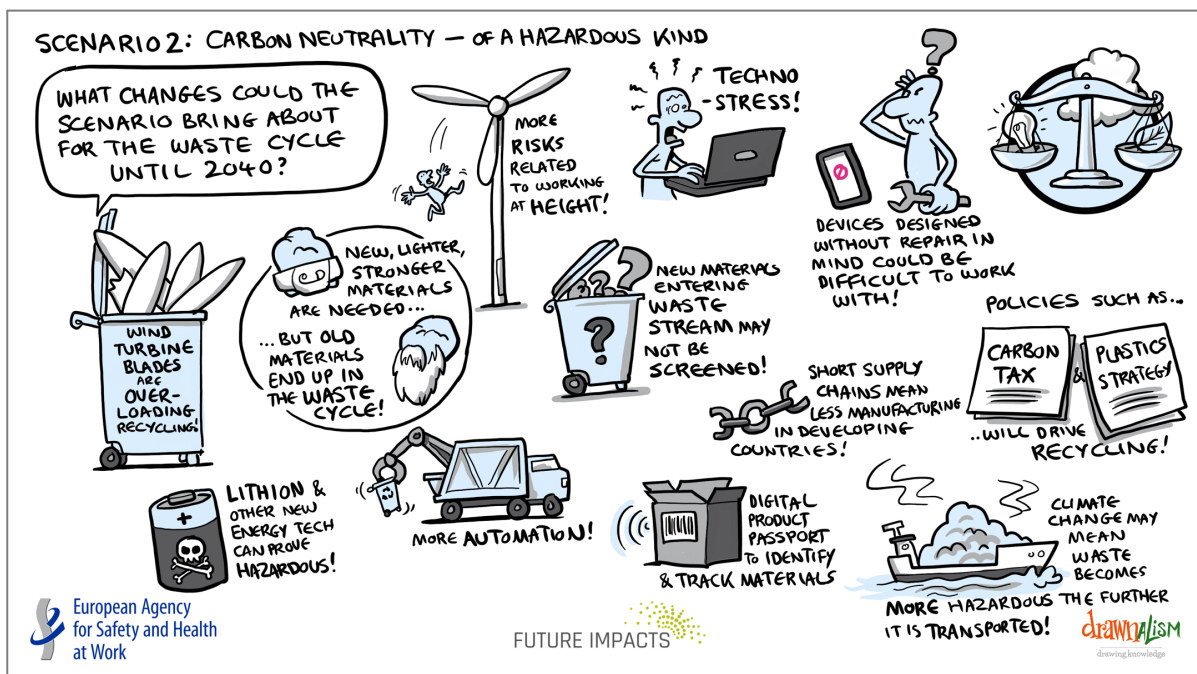 SCENARIO 2: CARBON NEUTRALITY — OF A HAZARDOUS KIND
WHAT CHANGES COULD THE
SCENARIO BRING ABOUT
FOR THE WASTE CYCLE
UNTIL 2040?
WIND
TURBINE
BLADES
ARE
OVER-
LOADING
RECYCLING!
NEW, LIGHTER,
STRONGER
MATERIALS
ARE NEEDED...
...BUT OLD
MATERIALS
END UP IN
THE WASTE
CYCLE!
MORE
RISKS
RELATED
TO WORKING
AT HEIGHT!
TECHNO
-STRESS!
?
DEVICES DESIGNED
WITHOUT REPAIR IN
MIND COULD BE
DIFFICULT TO WORK
WITH!
? ? ?
?
NEW MATERIALS
ENTERING
WASTE
STREAM MAY
NOT BE
SCREENED!
SHORT SUPPLY
CHAINS MEAN
LESS MANUFACTURING
IN DEVELOPING
COUNTRIES!
POLICIES SUCH AS...
CARBON
TAX
&
PLASTICS
STRATEGY
...WILL DRIVE
RECYCLING!
+
LITHION &
OTHER NEW
ENERGY TECH
CAN PROVE
HAZARDOUS!
MORE AUTOMATION!
DIGITAL
PRODUCT
PASSPORT
TO IDENTIFY
& TRACK MATERIALS
CLIMATE
CHANGE MAY
MEAN
WASTE
BECOMES
MORE HAZARDOUS THE FURTHER
IT IS TRANSPORTED!
European Agency
for Safety and Health
at Work
FUTURE IMPACTS
drawnalism
drawing knowledge